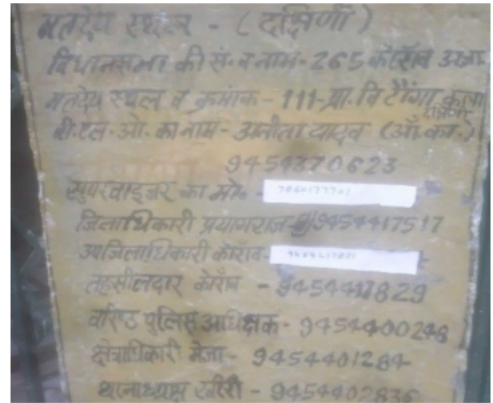 मतदेय स्थल - (दक्षिणी)
विधानसभा की सं. व नाम- 265 कोराँव
मतदेय स्थल व क्रमांक - 111-प्रा. वि टौंगा कला
बी.एल.ओ. का नाम - अनीता यादव (आँ.का.)
9454370623
सुपरवाइजर का मो०-
जिलाधिकारी प्रयागराज- 9454417517
उपजिलाधिकारी कोराँव-
तहसीलदार कोराँव - 9454417829
वरिष्ठ पुलिस अधिक्षक - 9454400248
क्षेत्राधिकारी मेजा - 9454401284
थानाध्यक्ष खीरी - 9454402836